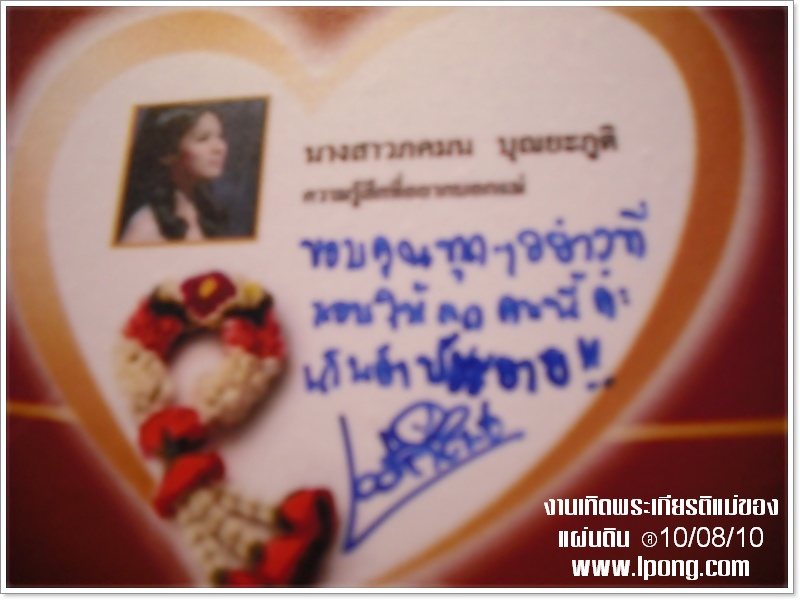 นางสาวภคมน บุณยะภูติ
ความรู้สึกที่อยากบอกแม่
ขอบคุณทุกๆอย่างที่
มอบให้ คนนี้ ค่ะ
!!
งานเทิดพระเกียรติแม่ของ
แผ่นดิน @10/08/10
www.lpong.com